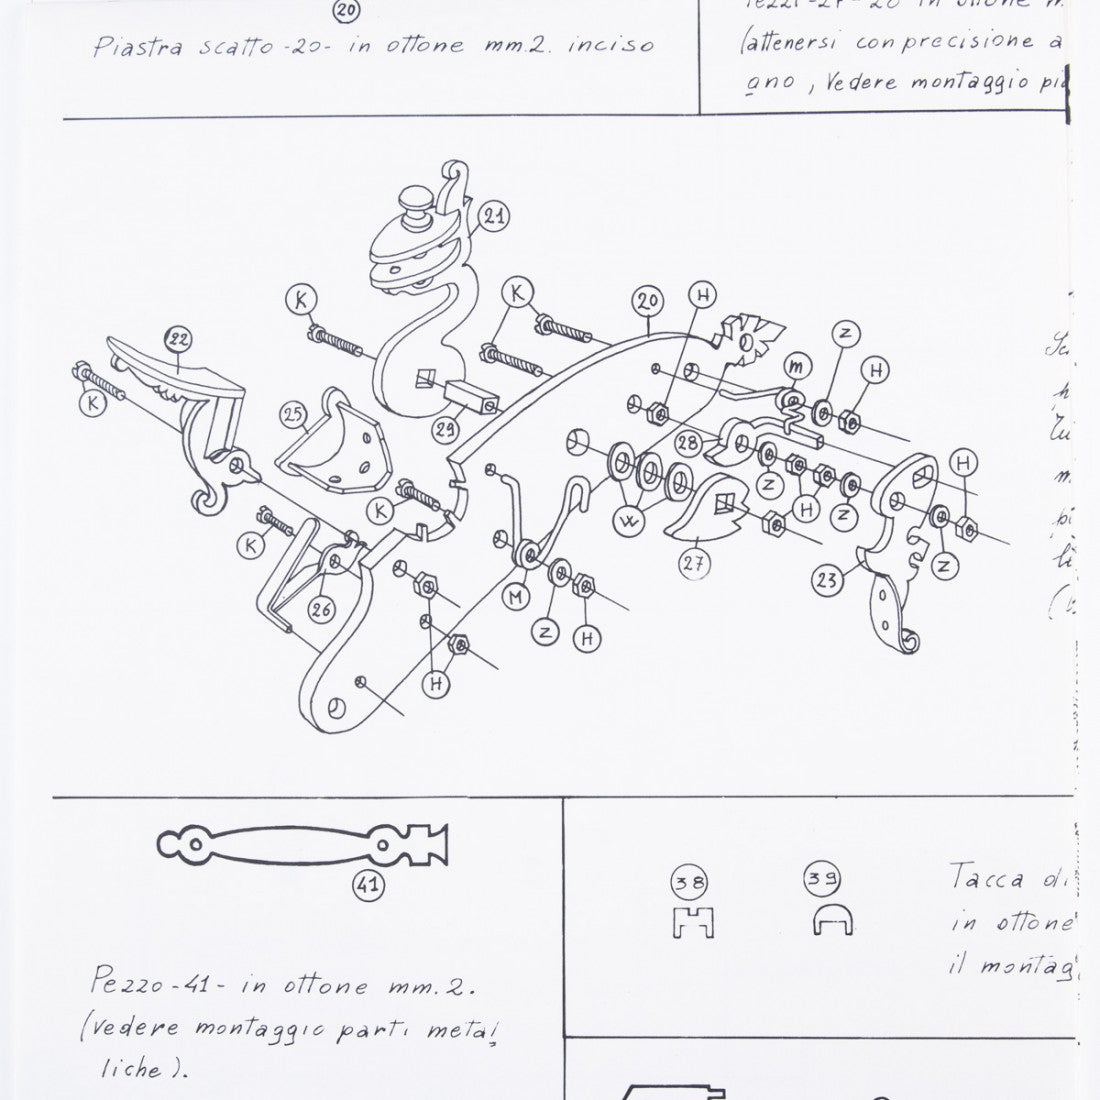 20
Piastra scatto -20- in ottone mm.2. inciso
(attenersi con precisione a
ano, Vedere montaggio
21
K
K
20
H
22
Z
m
H
K
25
29
28
H
K
Z
H
Z
W
K
27
23
Z
26
M
Z
H
H
41
Pezzo -41- in ottone mm.2.
(vedere montaggio parti metal
liche).
38
39
Tacca di
in ottone
il montag